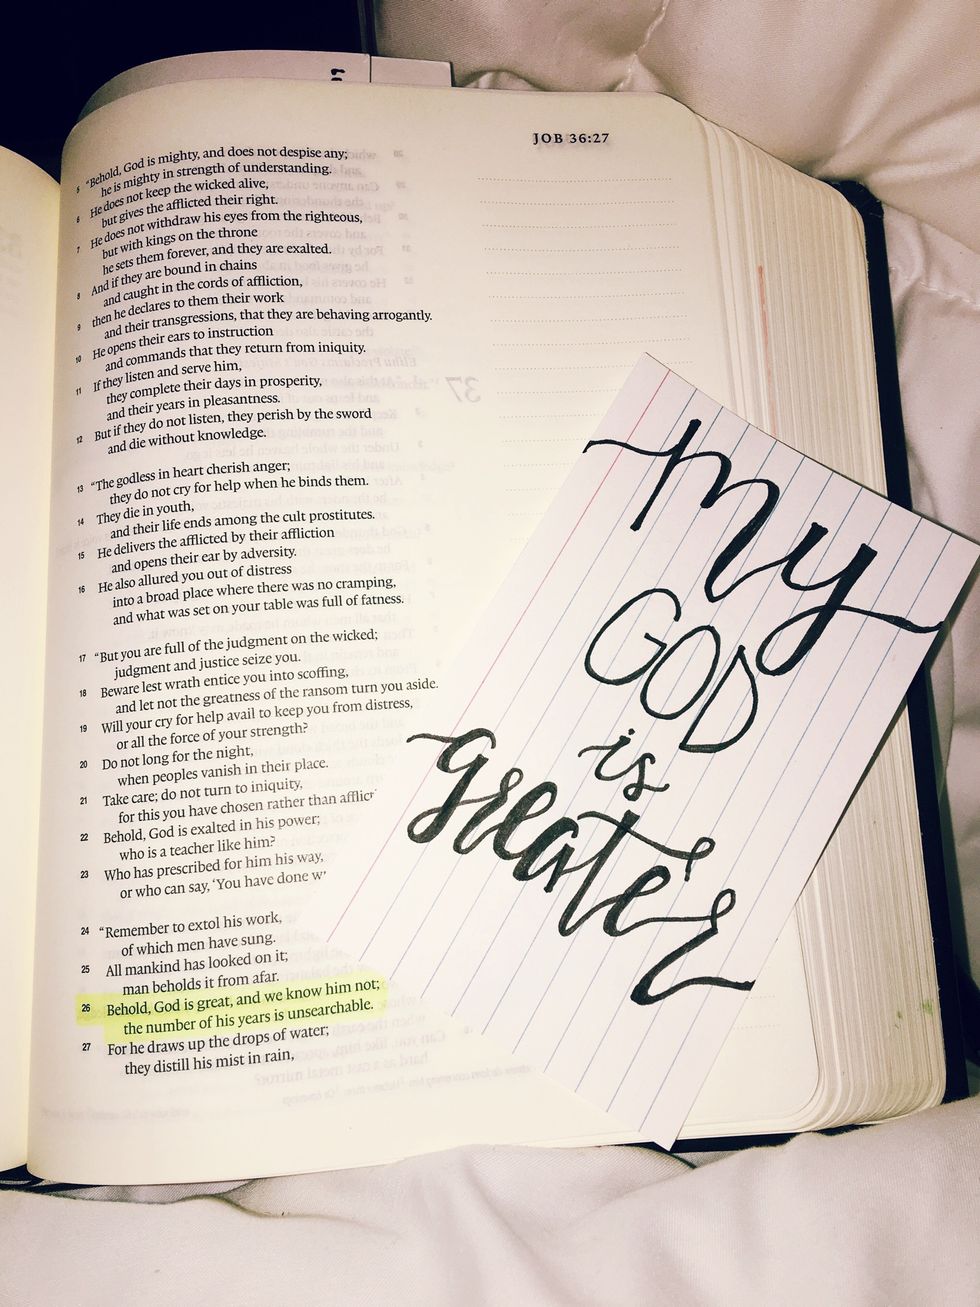 JOB 36:27
5 “Behold, God is mighty, and does not despise any;
he is mighty in strength of understanding.
6 He does not keep the wicked alive,
but gives the afflicted their right.
7 He does not withdraw his eyes from the righteous,
but with kings on the throne
he sets them forever, and they are exalted.
8 And if they are bound in chains
and caught in the cords of affliction,
9 then he declares to them their work
and their transgressions, that they are behaving arrogantly.
10 He opens their ears to instruction
and commands that they return from iniquity.
11 If they listen and serve him,
they complete their days in prosperity,
and their years in pleasantness.
12 But if they do not listen, they perish by the sword
and die without knowledge.
13 “The godless in heart cherish anger;
they do not cry for help when he binds them.
14 They die in youth,
and their life ends among the cult prostitutes.
15 He delivers the afflicted by their affliction
and opens their ear by adversity.
16 He also allured you out of distress
into a broad place where there was no cramping,
and what was set on your table was full of fatness.
17 “But you are full of the judgment on the wicked;
judgment and justice seize you.
18 Beware lest wrath entice you into scoffing,
and let not the greatness of the ransom turn you aside.
19 Will your cry for help avail to keep you from distress,
or all the force of your strength?
20 Do not long for the night,
when peoples vanish in their place.
21 Take care; do not turn to iniquity,
for this you have chosen rather than
22 Behold, God is exalted in his power;
who is a teacher like him?
23 Who has prescribed for him his way,
or who can say, ‘You have done
24 “Remember to extol his work,
of which men have sung.
25 All mankind has looked on it;
man beholds it from afar.
26 Behold, God is great, and we know him not;
the number of his years is unsearchable.
27 For he draws up the drops of water;
they distill his mist in rain,
my
GOD
is
greater